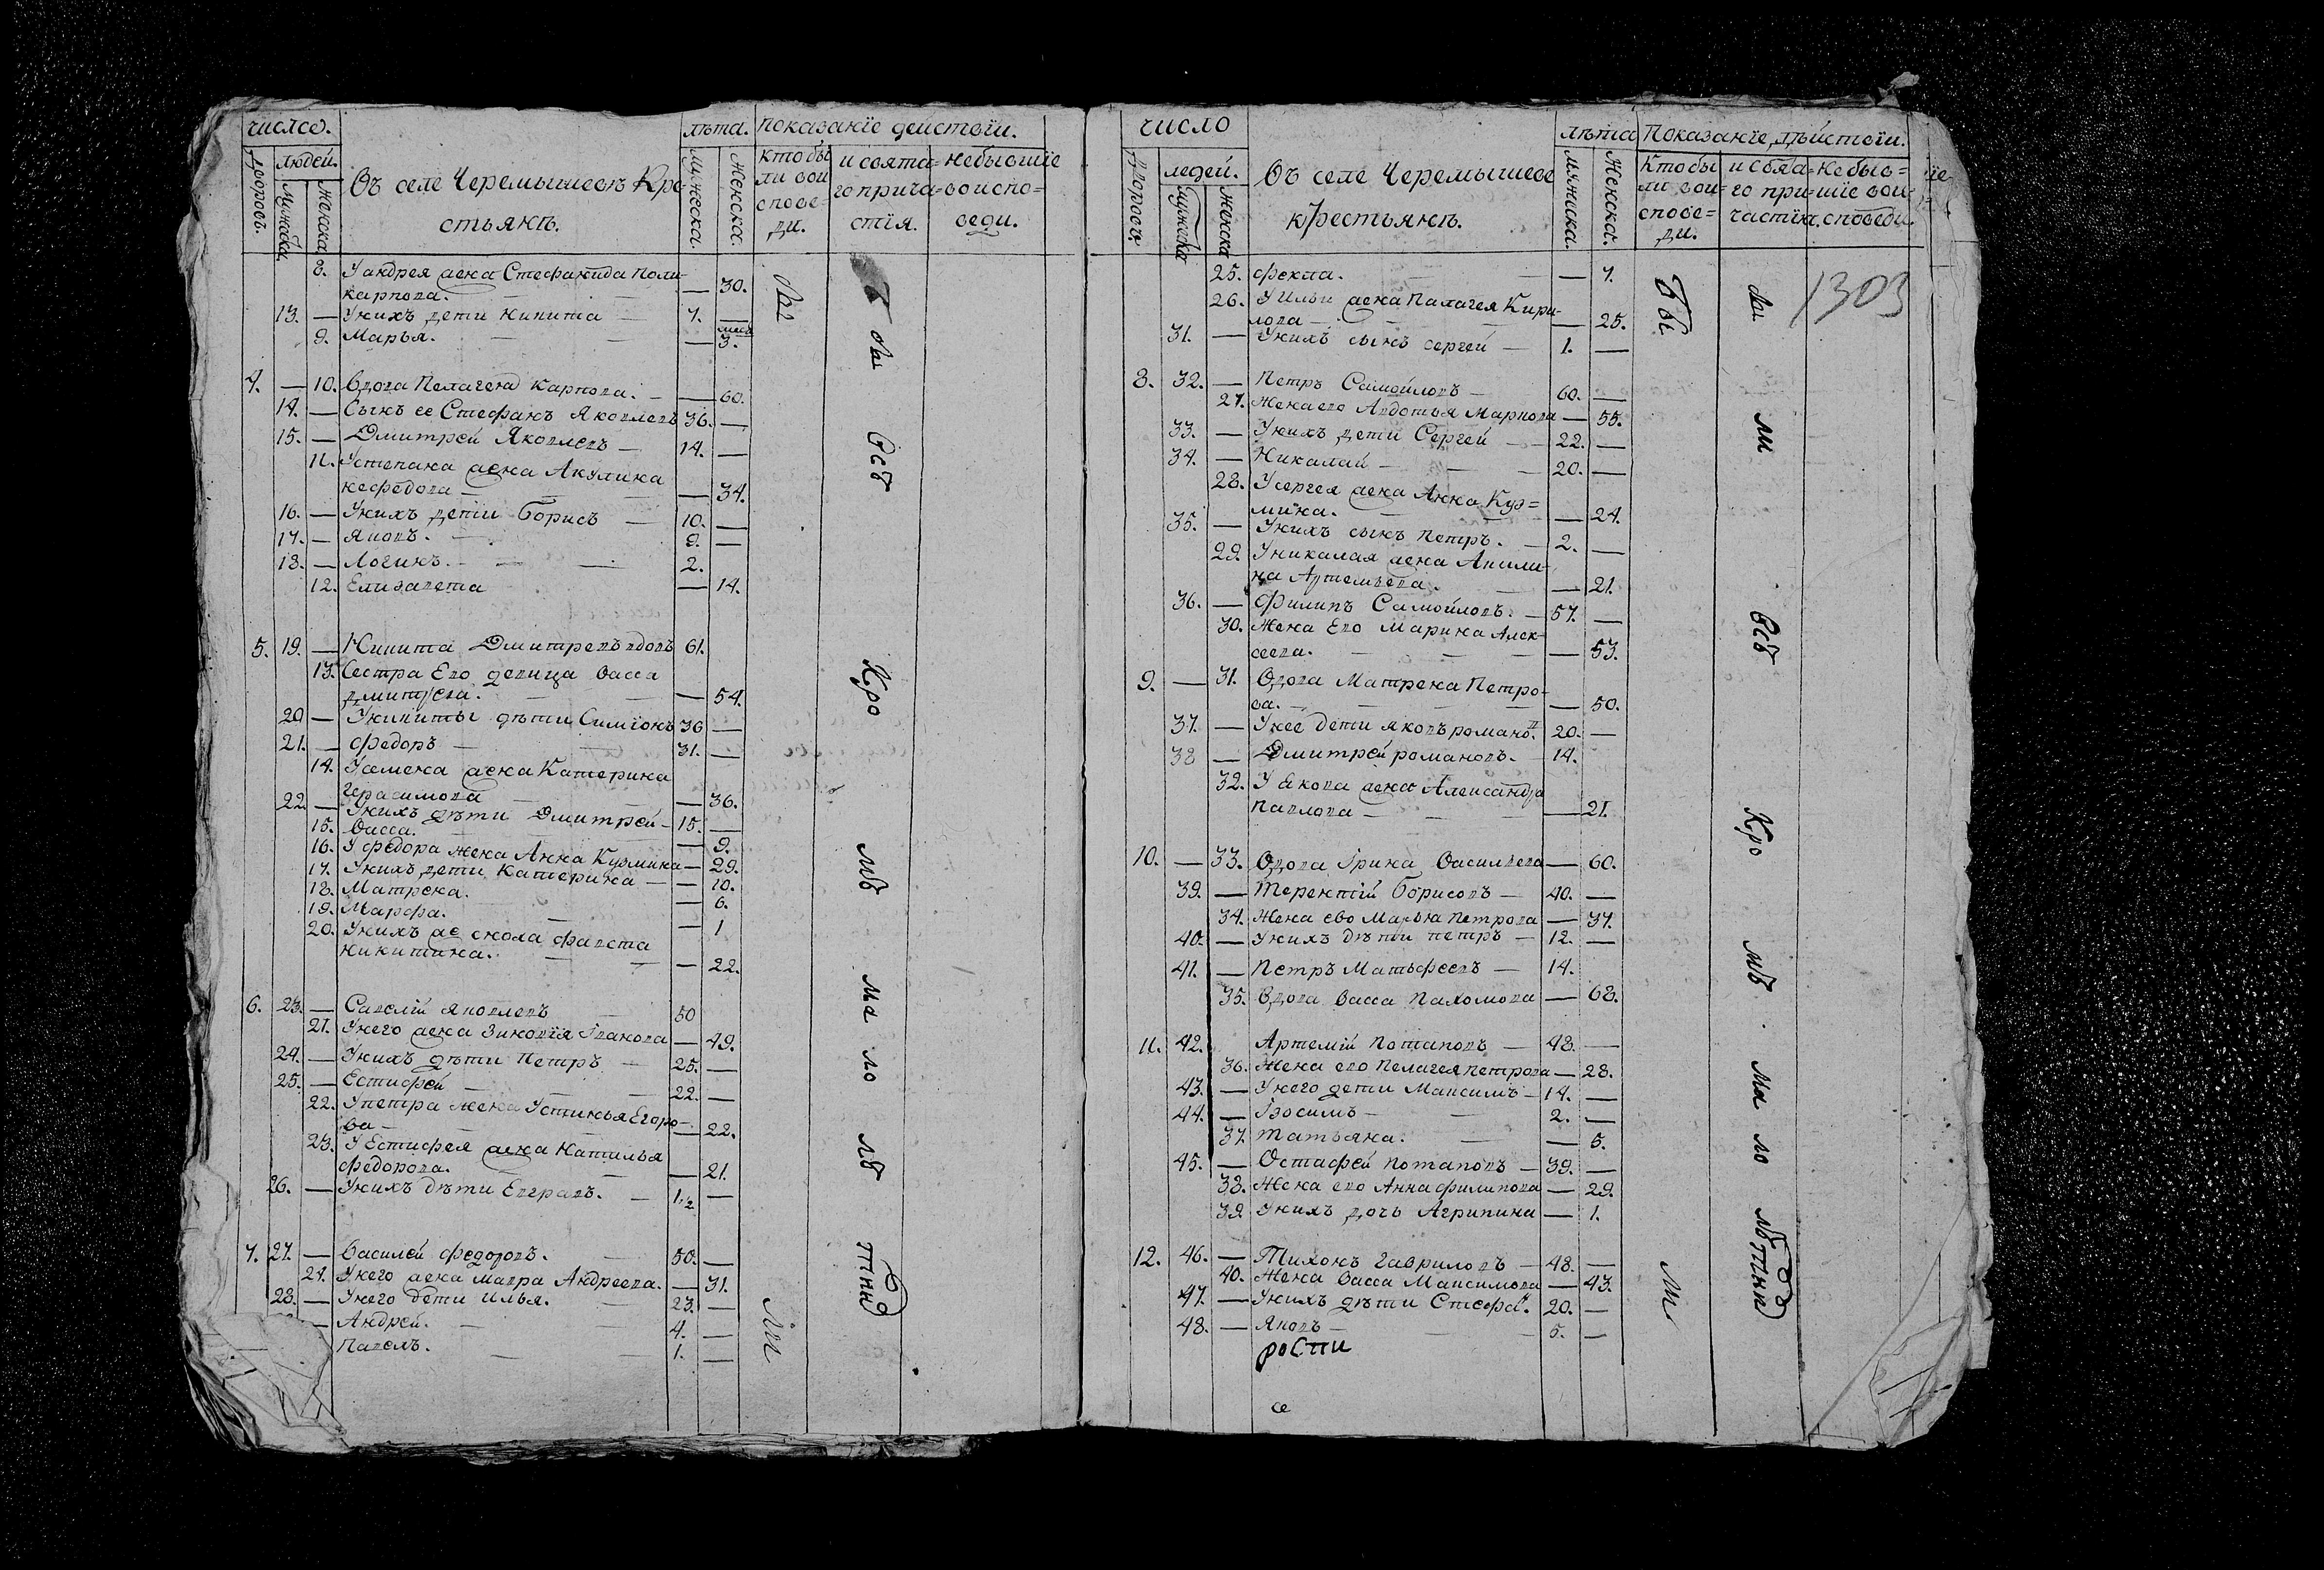 число. лѣта. показанїе действїи.
дворовъ. людей. Въ селе Черемышевѣ Кре- мужеска. женска. кто бы и свята= не бывшїе
мужеска женска ли вои го прича= во испо=
стьянѣ. спове= стїя. веди.
ди.
8. У андрея жена Стефанида Поли-
карпова. — 30.
13. — У нихъ дети Никита — 7. —
9. Марья. — меся 3.
4. — 10. Вдова Пелагея Карпова. — 60.
14. — Сынъ ее Стефанъ Яковлевъ 36. —
15. — Дмитрей Яковлевъ — 14. —
11. У степана жена Акулина
нефедова — 34.
16. — У нихъ дети Борисъ — 10. —
17. — Яковъ. 9. —
18. — Логинъ. — 2.
12. Елизавета — 14.
5. 19. — Никита Дмитревъ вдовъ 61.
13. Сестра Его девица Васса
дмитрева. — 54.
20 — У никиты дѣти Симїонъ 36 —
21. — Федоръ — 31. —
14. У семена жена Катерина
Герасимова — 36.
22. — У нихъ дѣти Дмитрей — 15. —
15. Васса. — 9.
16. У федора жена Анна Кузмина — 29.
17. У нихъ дети Катерина — 10.
18. Матрена. — 6.
19. Марфа. — 1
20. У нихъ же сноха фавста
никитина. — 22.
6. 23. — Савелїй Яковлевъ 50
21. У него жена Зиновїя Iванова — 49.
24. — У нихъ дѣти Петръ — 25. —
25. — Естифей — 22. —
22. У петра жена Устинья Егоро-
ва — 22.
23. У Естифея жена Наталья
федорова. — 21.
26. — У нихъ дѣти Евграфъ. — 1½ —
7. 27. — Василей федоровъ. 50. —
24. У него жена мавра Андреева. — 31.
28. — У него дети Илья. 23. —
— Андрей. — 4. —
Павелъ. — 1. —
Вы
вы
всѣ
Кро
мѣ
ма ло
лѣ
тнид
ли
число лѣта Показанїе дѣйствїи.
дворовъ. людей. Въ селе Черемышеве мужеска. женска. Кто бы и свята= не быв=
мужеска женска ли вои= го при= шїе вои=
крестьянѣ. спове= частїя. споведи.
ди.
25. фекла. — 7.
26. У Ильи жена Палагея Кири-
лова — 25.
31. — У нихъ сынъ сергей — 1. —
8. 32. — Петръ Самойловъ — 60. —
27. Жена его Авдотья Марпова — 55.
33. — У нихъ дети Сергей — 22. —
34. — Николай — 20. —
28. У сергея жена Анна Куз=
мина. — 24.
35. — У нихъ сынъ Петръ. — 2. —
29. У николая жена Акили-
на Артемьева. — 21.
36. — Филипъ Самойловъ. — 57. —
30. Жена Его Марина Алек-
сеева. — 53.
9. — 31. Вдова Матрена Петро-
ва. — 50.
37. — У нее дети яковъ романовъ. 20. —
38 — Дмитрей романовъ. 14.
32. У Якова жена Александра
Павлова — 21.
10. — 33. Вдова Iрина Васильева — 60.
39. — Терентїй Борисовъ — 40. —
34. Жена ево Марья петрова — 37.
40. — У нихъ дѣти петръ — 12. —
41. — Петръ Матьфеевъ — 14.
35. Вдова Васса Пахомова — 68.
11. 42. Артемїй Потаповъ — 48. —
36. Жена его Пелагея петрова — 28.
43. — У него дети Максимъ — 14. —
44. — Iзосимъ — 2. —
37. Татьяна. — 5.
45. — Остафей потаповъ — 39. —
38. Жена его Анна филипова — 29.
39 У нихъ дочь Агрипина — 1.
12. 46. — Тихонъ Гавриловъ — 48. —
40. Жена Васса Максимова — 43.
47. — У нихъ дѣти Стефанъ. 20. —
48. — Яковъ — 5. —
рости
се
Бы
ли
вы
ли
всѣ
Кро
мѣ
ма ло
лѣтнид
1303